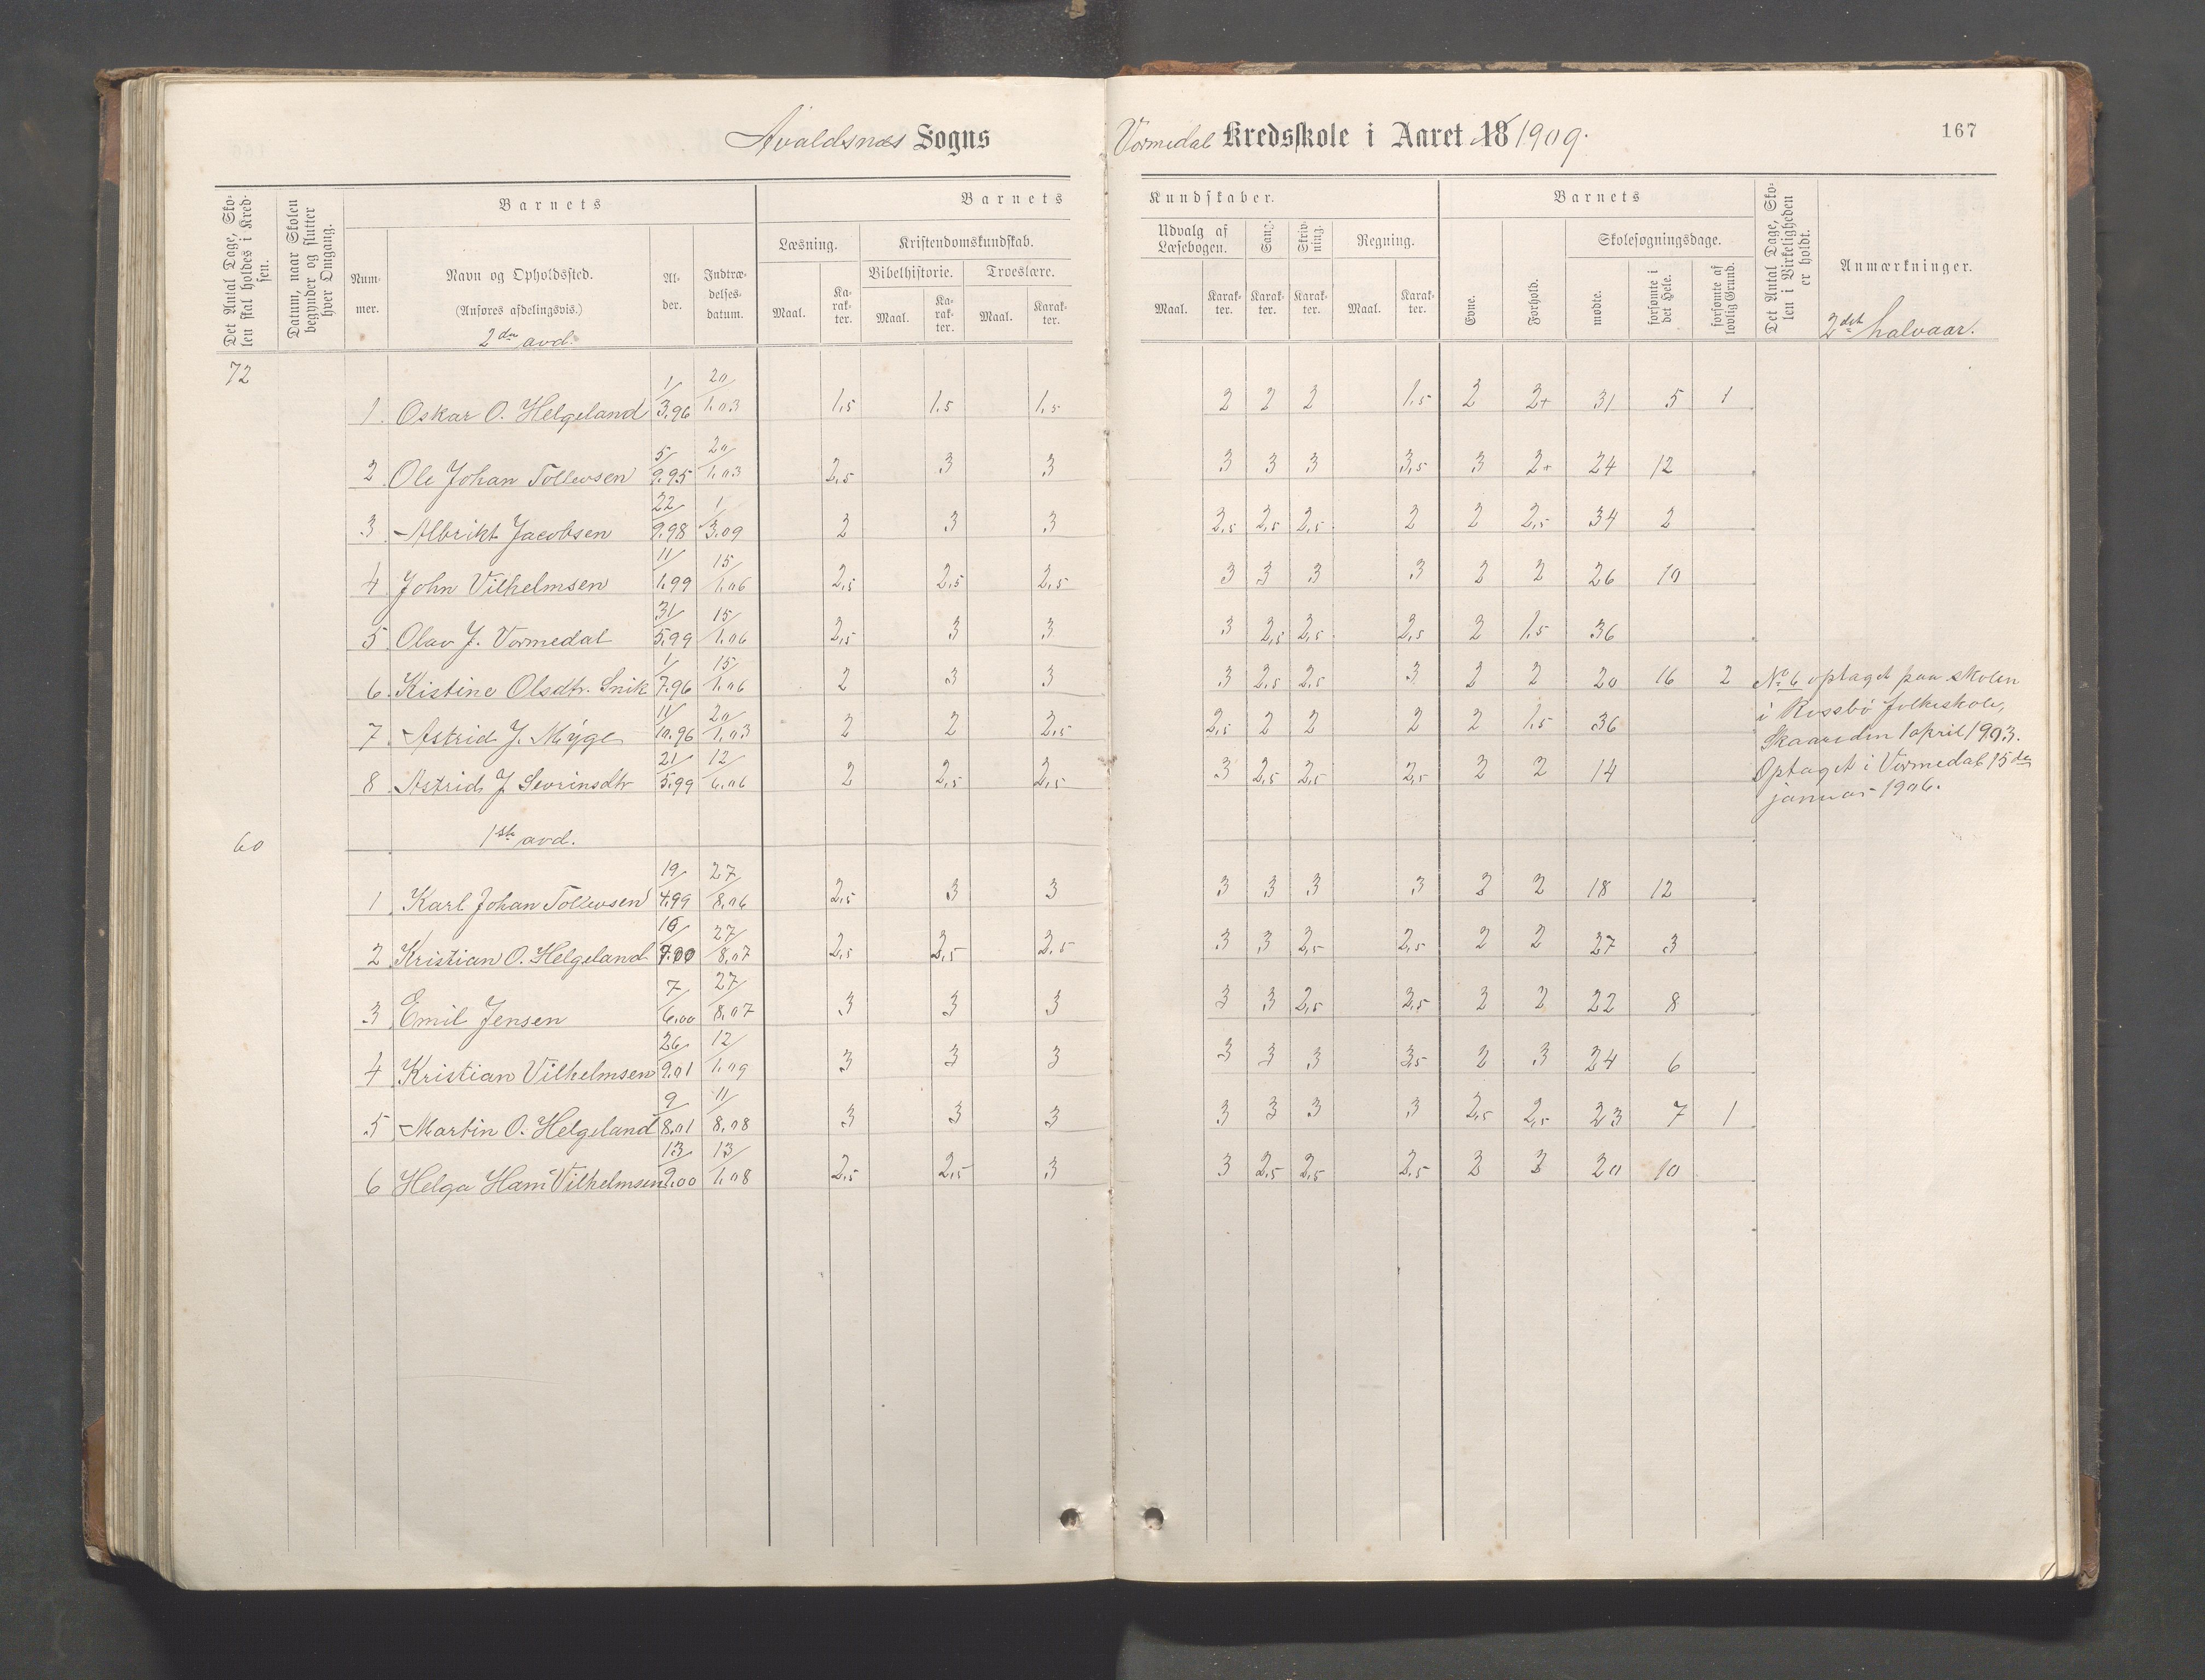 Avaldsnes Sogns Vormedal Kredsskole i Aaret 18 1909.
167
Det Antal Dage, Skolen skal holdes i Kredsen.
Datum, naar Skolen begynder og slutter hver Omgang.
Barnets
Nummer.
Navn og Opholdssted.
(Anføres afdelingsvis.)
2den avd.
Alder.
Indtrædelsesdatum.
Barnets Kundskaber.
Læsning.
Maal. Karakter.
Kristendomskundskab.
Bibelhistorie. Troeslære.
Maal. Karakter. Maal. Karakter.
Udvalg af Læsebogen.
Maal. Karakter.
Sang. Karakter.
Skrivning. Karakter.
Regning.
Maal. Karakter.
Barnets
Evne. Forhold.
Skolesøgningsdage.
mødte. forsømte i det Hele. forsømte af lovlig Grund.
Det Antal Dage, Skolen i Virkeligheden er holdt.
Anmærkninger.
2det halvaar.
72
1 Oskar O. Helgeland 1/3.96 20/1.03 1,5 1,5 1,5 2 2 2 1,5 2 2+ 31 5 1
2 Ole Johan Tollevsen 5/9.95 20/1.03 2,5 3 3 3 3 3 3,5 3 2+ 24 12
3 Albrikt Jacobsen 22/9.98 1/3.09 2 3 3 2,5 2,5 2,5 2 2 2,5 34 2
4 John Vilhelmsen 11/1.99 15/1.06 2,5 2,5 2,5 3 3 3 3 2 2 26 10
5 Olav J. Vormedal 31/5.99 15/1.06 2,5 3 3 3 2,5 2,5 2,5 2 1,5 36
6 Kistine Olsdtr. Snik 1/7.96 15/1.06 2 3 3 3 2,5 2,5 3 2 2 20 16 2
7 Astrid J. Myge 11/10.96 20/1.03 2 2 2,5 2,5 2 2 2 2 1,5 36
8 Astrid J Sevrinsdtr 21/5.99 12/6.06 2 2,5 2,5 3 2,5 2,5 2,5 2 2 14
No 6 optaget paa skolen
i Rossbø folkeskole,
Skaare den 1 april 1903.
Optaget i Vormedal 15de
januar 1906.
60
1ste avd.
1 Karl Johan Tollevsen 19/4.99 27/8.06 2,5 3 3 3 3 3 3 2 2 18 12
2 Kristian O. Helgeland 16/7.00 27/8.07 2,5 2,5 2,5 3 3 2,5 2,5 2 2 27 3
3 Emil Jensen 7/6.00 27/8.07 3 3 3 3 3 2,5 2,5 2 2 22 8
4 Kristian Vilhelmsen 26/9.01 12/1.09 3 3 3 3 3 3 3,5 2 3 24 6
5 Martin O. Helgeland 9/8.01 11/8.08 3 3 3 3 3 3 3 2,5 2,5 23 7 1
6 Helga Vilhelmsen 13/9.00 13/1.08 2,5 2,5 3 3 2,5 2,5 2,5 2 2 20 10